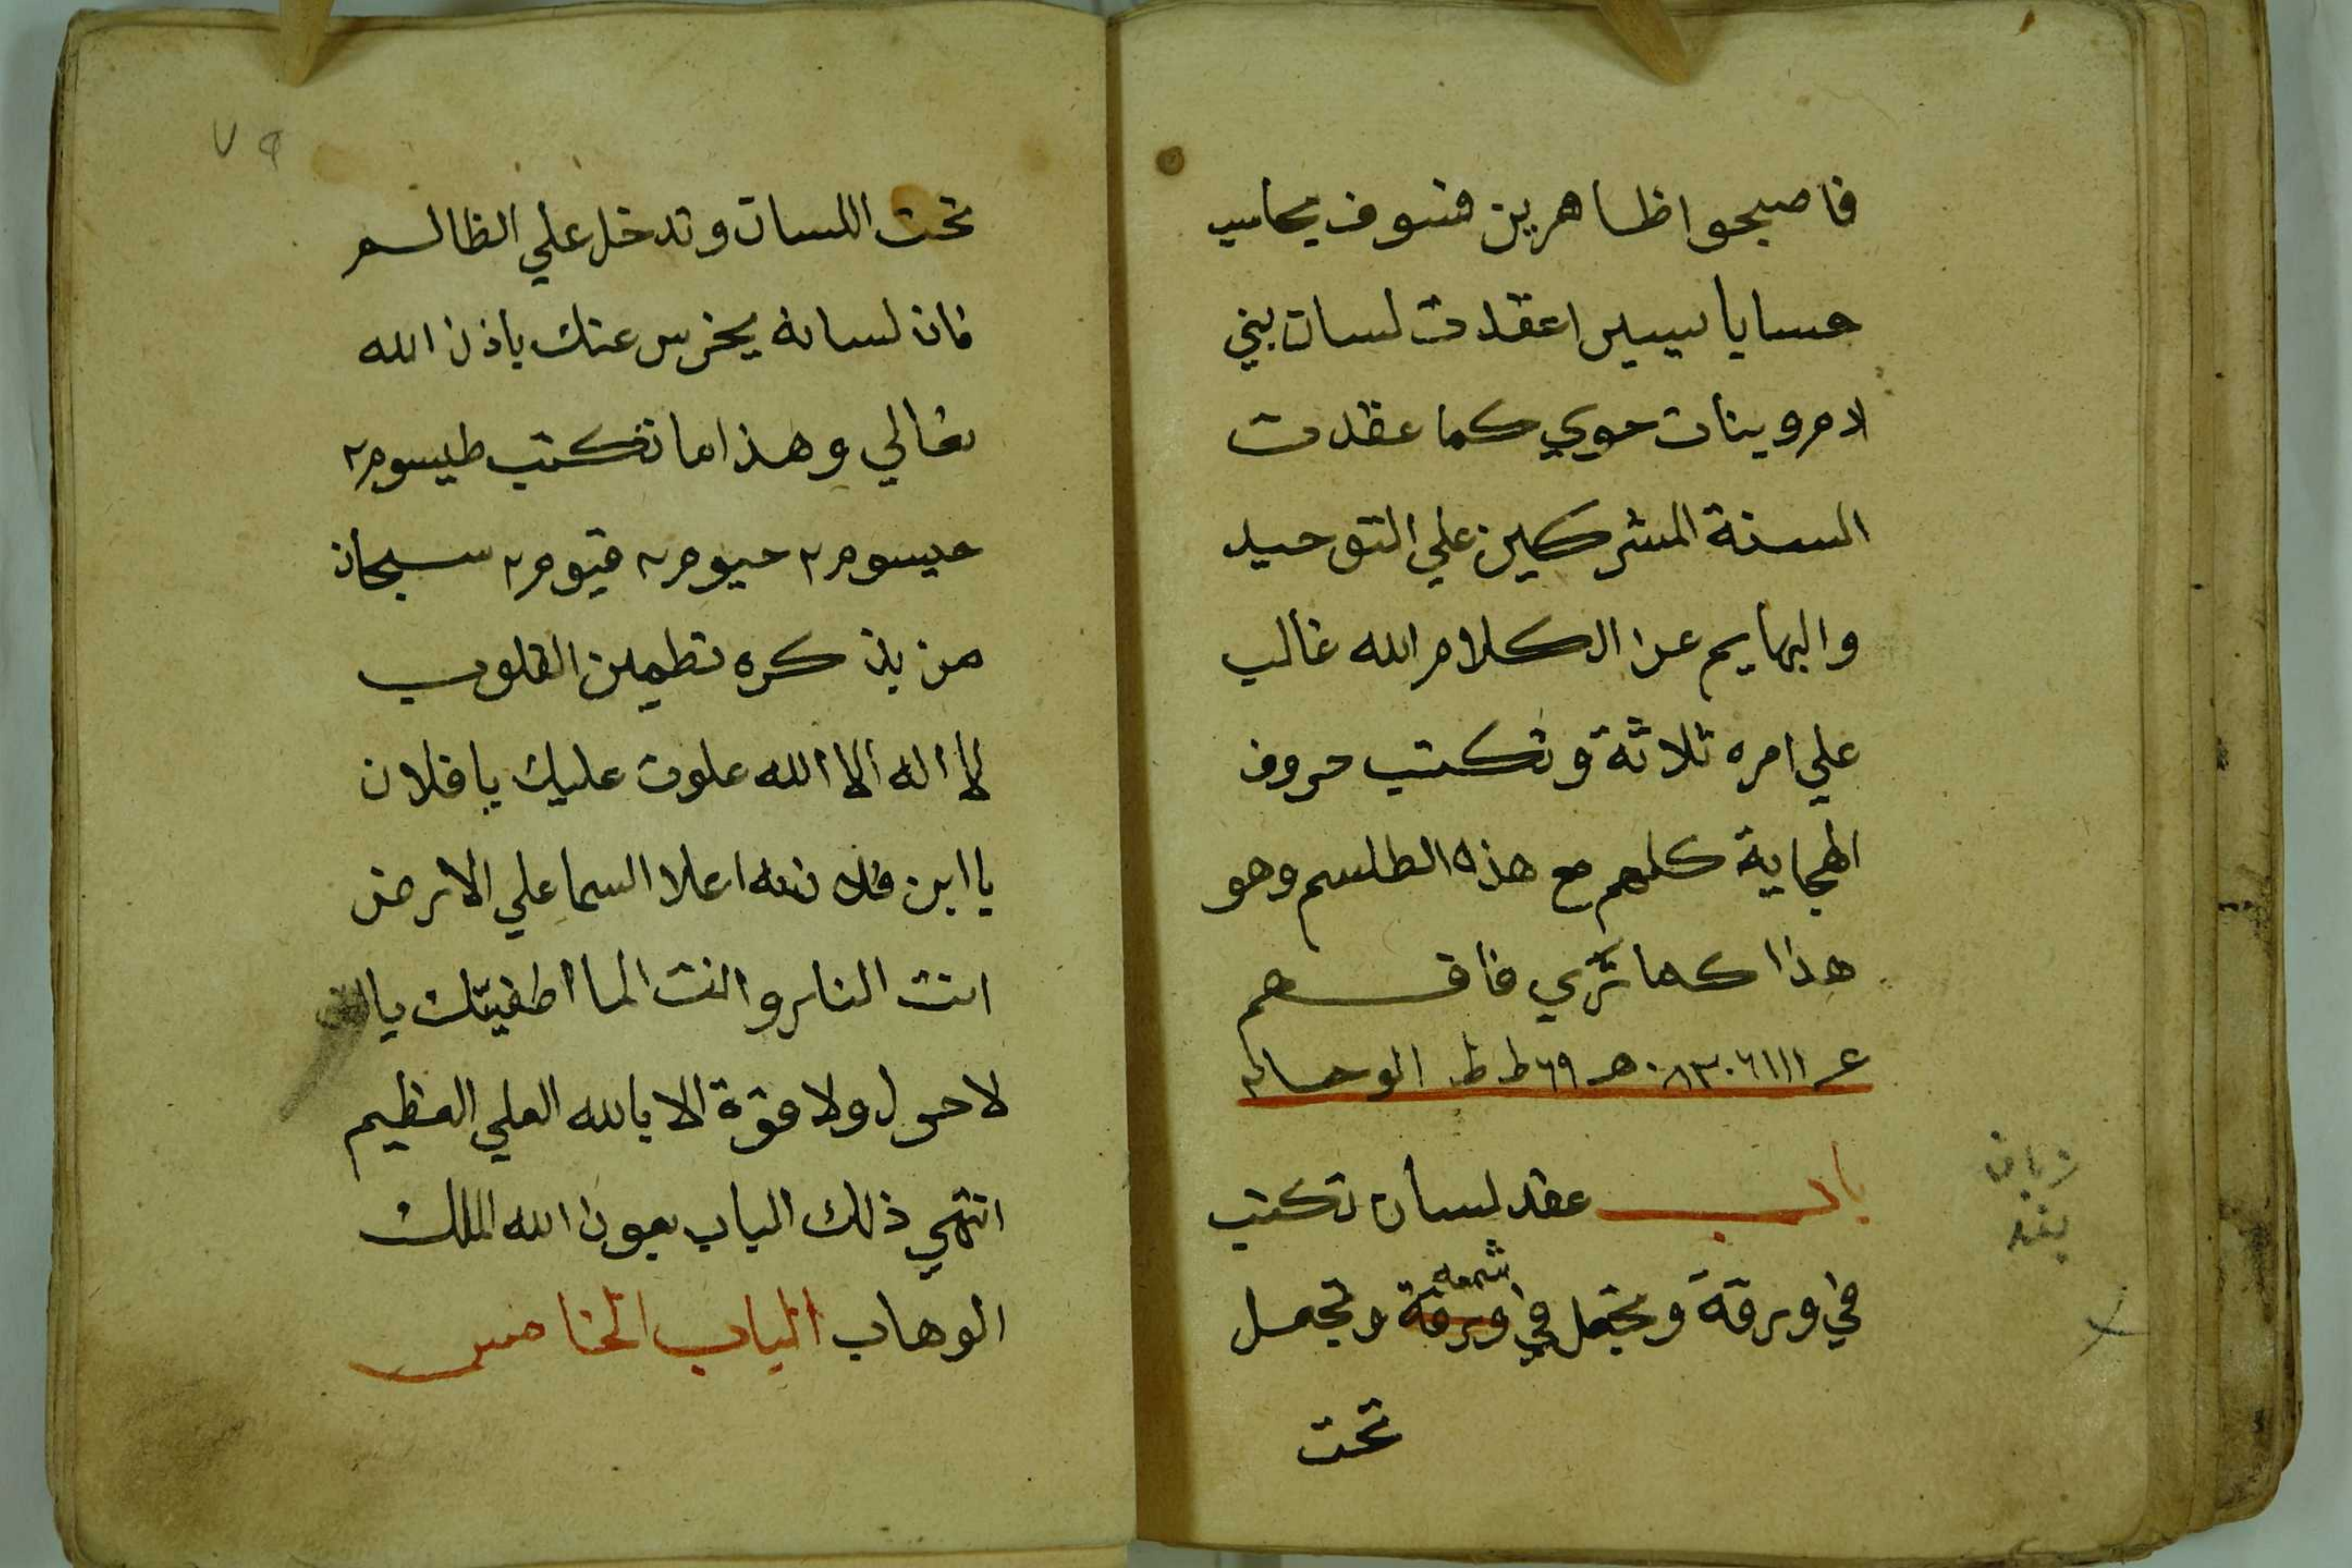 فاصبحوا ظاهرين فسوف يحاسب
حسابا يسيرا عقدت لسان بني
ادم وبنات حوي كما عقدت
السنة المشركين علي التوحيد
والبهايم عن الكلام الله غالب
علي امره ثلاثة وتكتب حروف
الهجاية كلهم مع هذه الطلسم وهو
هذا كما تري فافهم
باب عقد لسان تكتب
في ورقة وتجعل في ورقة وتجعل
شمعه
تحت
زبان
بند
٧٩
تحت اللسان وتدخل علي الظالم
فان لسانه يخرس عنك باذن الله
تعالي وهذا ما تكتب طيسوم٢
حيسوم٢ حيوم٢ قيوم٢ سبحان
من بذكره تطمين القلوب
لا اله الا الله علوت عليك يا فلان
يا ابن فلانه اعلا السما علي الارض
انت النار وانت الما اطفيتك يا
لا حول ولا قوة الا بالله العلي العظيم
انتهي ذلك الباب بعون الله الملك
الوهاب الباب الخامس